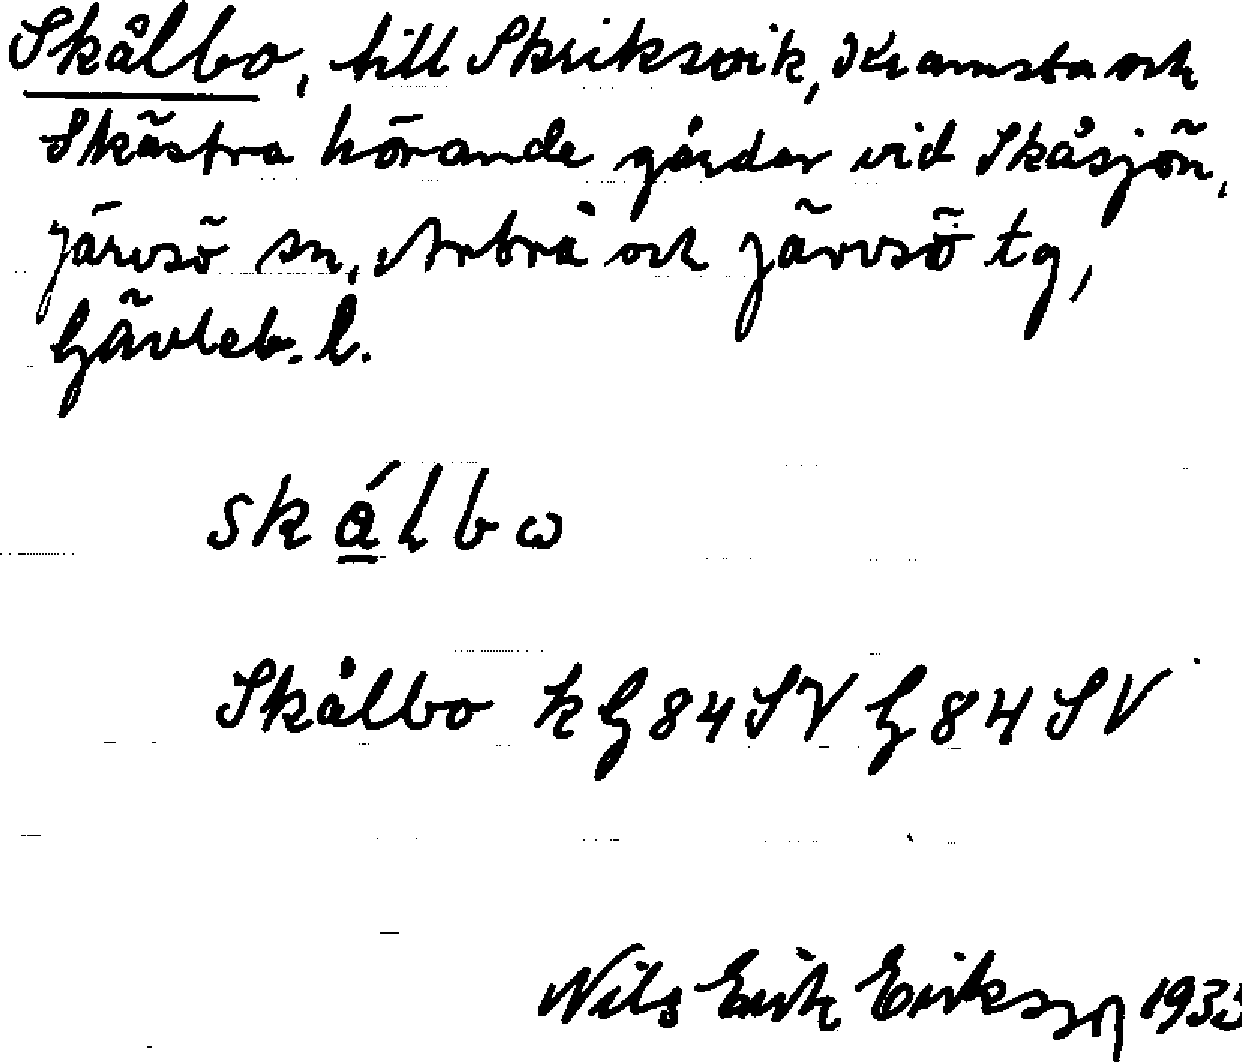 Skålbo, till Skriksvik, Kramsta och
Skästra hörande gårdar vid Skåsjön,
Järvsö sn, Arbrå och Järvsö tg,
Gävleb. l.
skálbω
Skålbo k G 84 SV G 84 SV
Nils Erik Eriksson